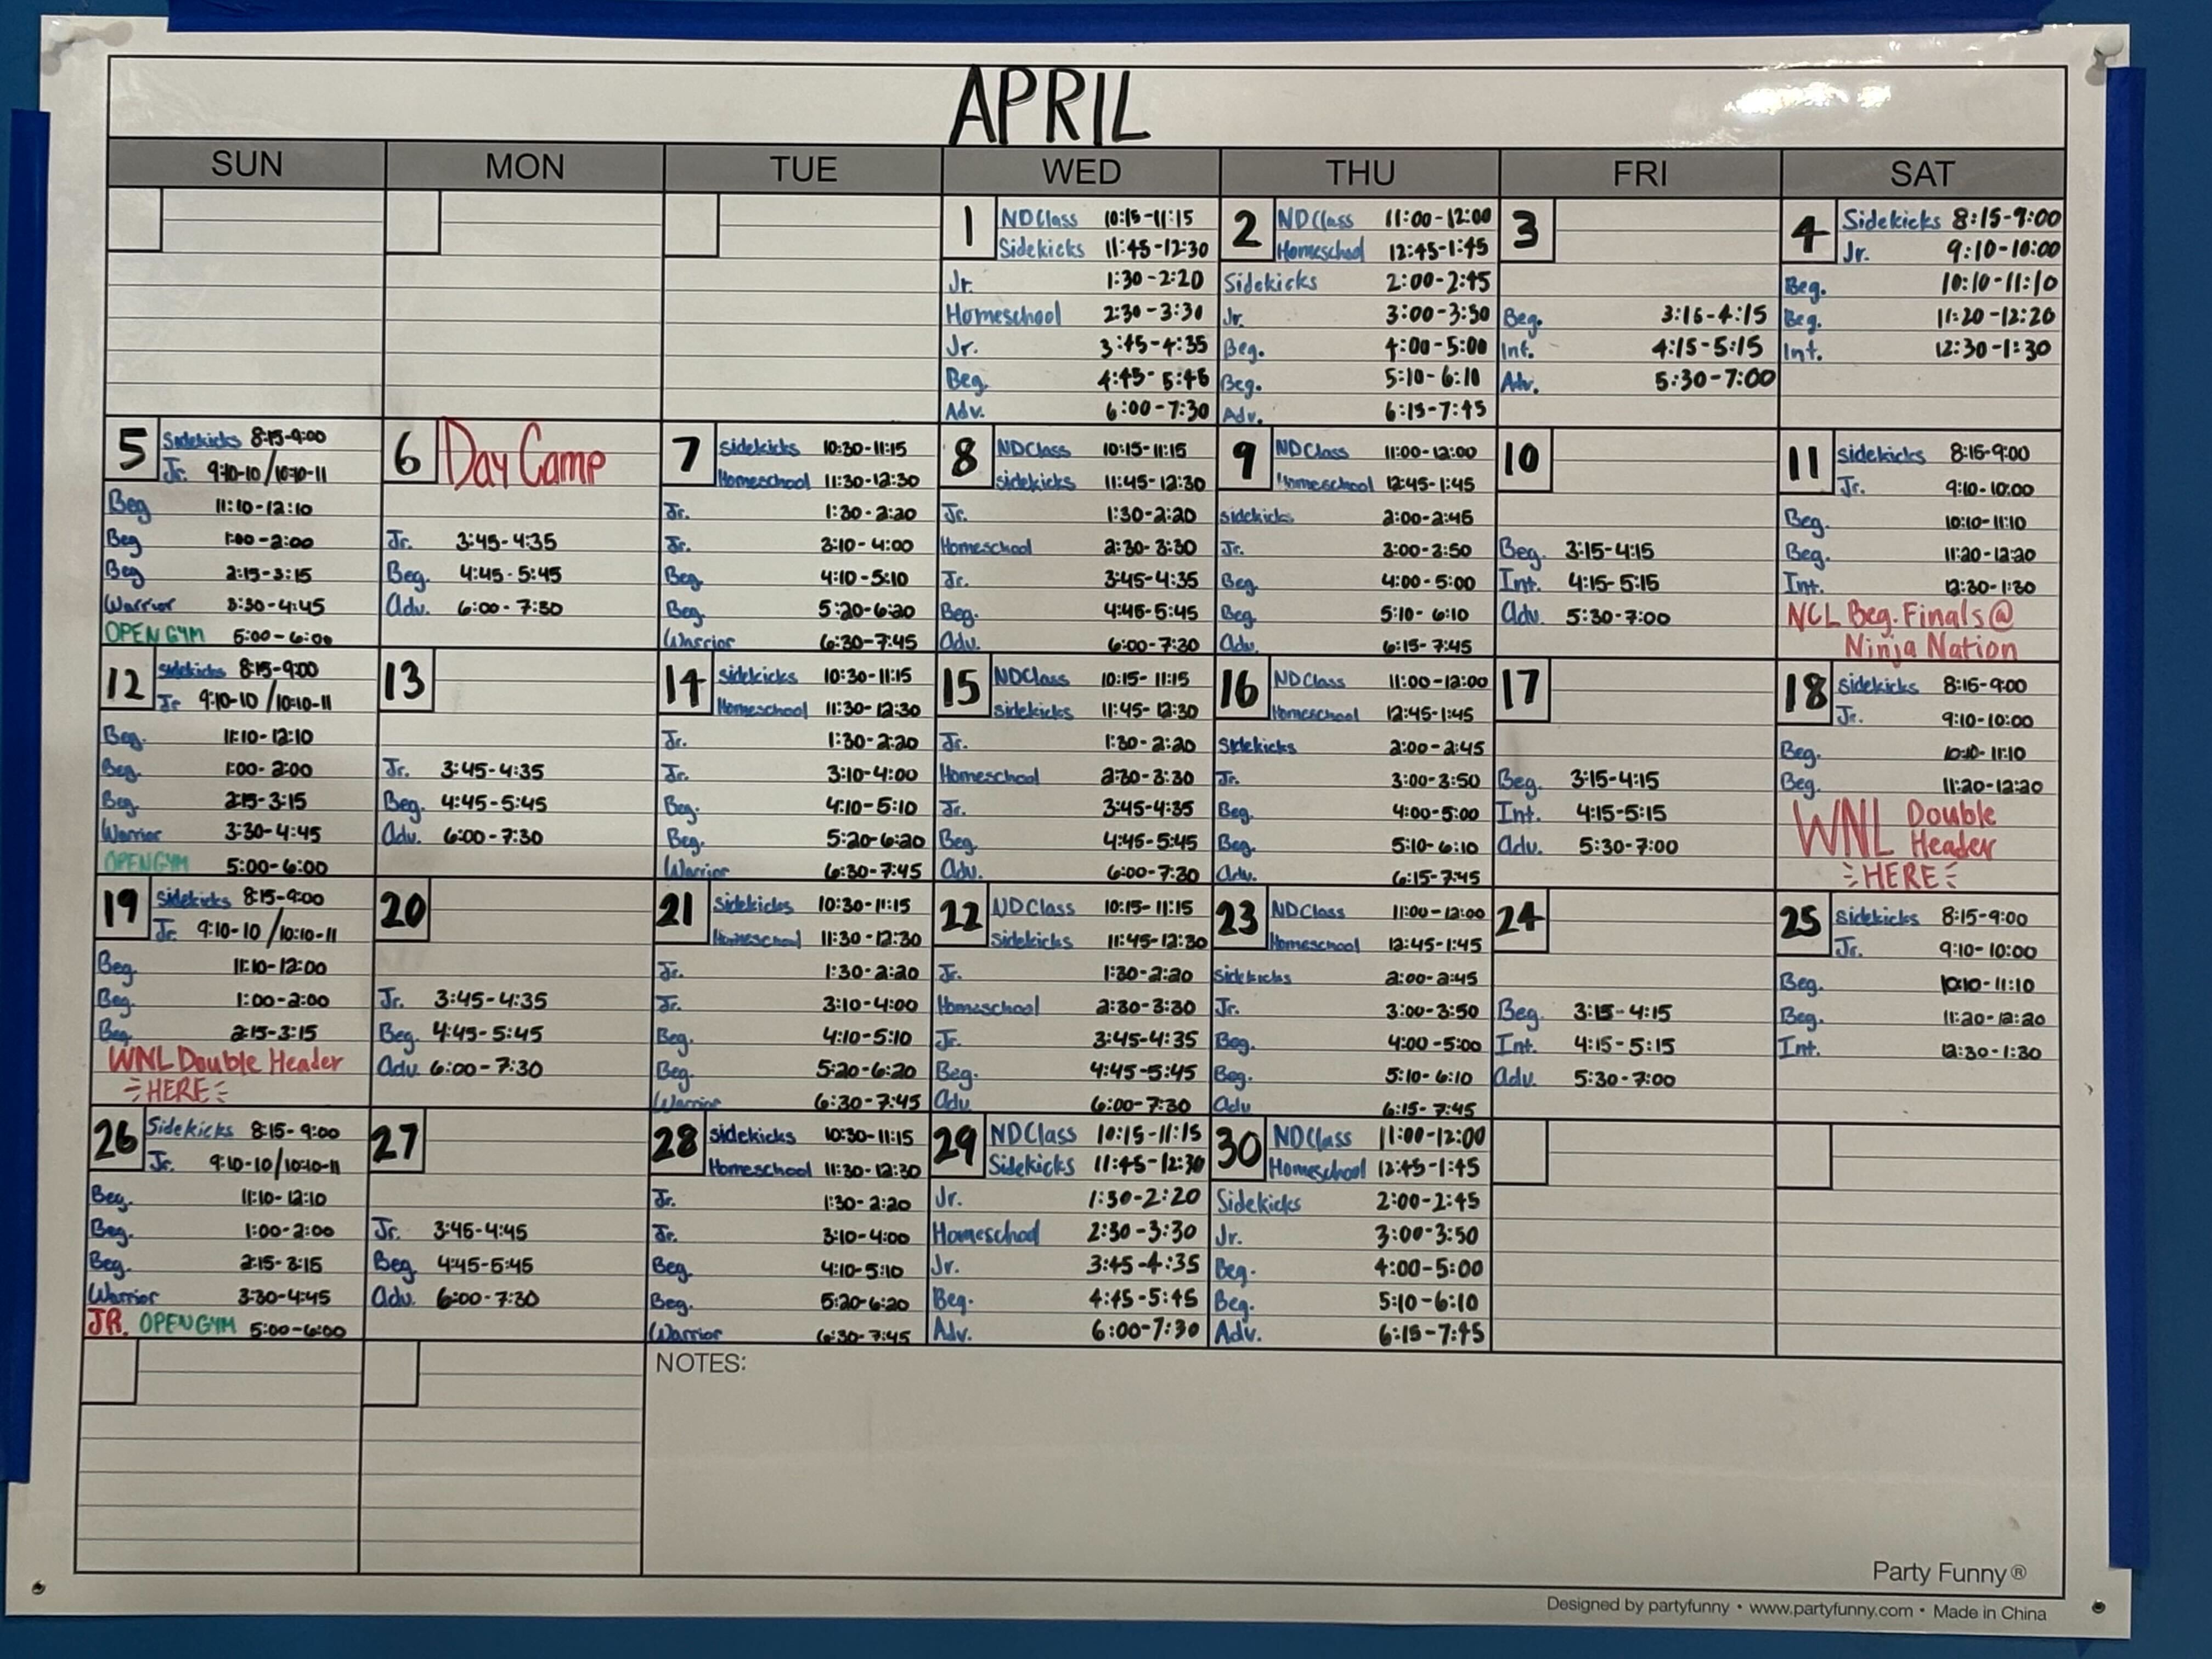 APRIL
SUN MON TUE WED THU FRI SAT
1
NDClass 10:15-11:15
Sidekicks 11:45-12:30
Jr. 1:30-2:20
Homeschool 2:30-3:30
Jr. 3:45-4:35
Beg. 4:45-5:45
Adv. 6:00-7:30
2
NDClass 11:00-12:00
Homeschool 12:45-1:45
Sidekicks 2:00-2:45
Jr. 3:00-3:50
Beg. 4:00-5:00
Beg. 5:10-6:10
Adv. 6:15-7:45
3
Beg. 3:15-4:15
Int. 4:15-5:15
Adv. 5:30-7:00
4
Sidekicks 8:15-9:00
Jr. 9:10-10:00
Beg. 10:10-11:10
Beg. 11:20-12:20
Int. 12:30-1:30
5
Sidekicks 8:15-9:00
Jr. 9:10-10/10:10-11
Beg 11:10-12:10
Beg 1:00-2:00
Beg 2:15-3:15
Warrior 3:30-4:45
OPEN GYM 5:00-6:00
6
Day Camp
Jr. 3:45-4:35
Beg. 4:45-5:45
Adv. 6:00-7:30
7
Sidekicks 10:30-11:15
Homeschool 11:30-12:30
Jr. 1:30-2:20
Jr. 3:10-4:00
Beg 4:10-5:10
Beg. 5:20-6:20
Warrior 6:30-7:45
8
NDClass 10:15-11:15
Sidekicks 11:45-12:30
Jr. 1:30-2:20
Homeschool 2:30-3:30
Jr. 3:45-4:35
Beg. 4:45-5:45
Adv. 6:00-7:30
9
NDClass 11:00-12:00
Homeschool 12:45-1:45
Sidekicks 2:00-2:45
Jr. 3:00-3:50
Beg. 4:00-5:00
Beg 5:10-6:10
Adv. 6:15-7:45
10
Beg. 3:15-4:15
Int. 4:15-5:15
Adv. 5:30-7:00
11
Sidekicks 8:15-9:00
Jr. 9:10-10:00
Beg. 10:10-11:10
Beg. 11:20-12:20
Int. 12:30-1:30
NCL Beg. Finals @
Ninja Nation
12
Sidekicks 8:15-9:00
Jr 9:10-10/10:10-11
Beg. 11:10-12:10
Beg. 1:00-2:00
Beg. 2:15-3:15
Warrior 3:30-4:45
OPEN GYM 5:00-6:00
13
Jr. 3:45-4:35
Beg. 4:45-5:45
Adv. 6:00-7:30
14
Sidekicks 10:30-11:15
Homeschool 11:30-12:30
Jr. 1:30-2:20
Jr. 3:10-4:00
Beg. 4:10-5:10
Beg. 5:20-6:20
Warrior 6:30-7:45
15
NDClass 10:15-11:15
Sidekicks 11:45-12:30
Jr. 1:30-2:20
Homeschool 2:30-3:30
Jr. 3:45-4:35
Beg. 4:45-5:45
Adv. 6:00-7:30
16
NDClass 11:00-12:00
Homeschool 12:45-1:45
Sidekicks 2:00-2:45
Jr. 3:00-3:50
Beg. 4:00-5:00
Beg. 5:10-6:10
Adv. 6:15-7:45
17
Beg. 3:15-4:15
Int. 4:15-5:15
Adv. 5:30-7:00
18
Sidekicks 8:15-9:00
Jr. 9:10-10:00
Beg. 10:10-11:10
Beg. 11:20-12:20
WNL Double
Header
HERE
19
Sidekicks 8:15-9:00
Jr. 9:10-10/10:10-11
Beg. 11:10-12:00
Beg. 1:00-2:00
Beg. 2:15-3:15
WNL Double Header
HERE
20
Jr. 3:45-4:35
Beg. 4:45-5:45
Adv. 6:00-7:30
21
Sidekicks 10:30-11:15
Homeschool 11:30-12:30
Jr. 1:30-2:20
Jr. 3:10-4:00
Beg. 4:10-5:10
Beg. 5:20-6:20
Warrior 6:30-7:45
22
NDClass 10:15-11:15
Sidekicks 11:45-12:30
Jr. 1:30-2:20
Homeschool 2:30-3:30
Jr. 3:45-4:35
Beg. 4:45-5:45
Adv. 6:00-7:30
23
NDClass 11:00-12:00
Homeschool 12:45-1:45
Sidekicks 2:00-2:45
Jr. 3:00-3:50
Beg. 4:00-5:00
Beg. 5:10-6:10
Adv 6:15-7:45
24
Beg. 3:15-4:15
Int. 4:15-5:15
Adv. 5:30-7:00
25
Sidekicks 8:15-9:00
Jr. 9:10-10:00
Beg. 10:10-11:10
Beg. 11:20-12:20
Int. 12:30-1:30
26
Sidekicks 8:15-9:00
Jr. 9:10-10/10:10-11
Beg. 11:10-12:10
Beg. 1:00-2:00
Beg. 2:15-3:15
Warrior 3:30-4:45
JR. OPEN GYM 5:00-6:00
27
Jr. 3:45-4:45
Beg. 4:45-5:45
Adv. 6:00-7:30
28
Sidekicks 10:30-11:15
Homeschool 11:30-12:30
Jr. 1:30-2:20
Jr. 3:10-4:00
Beg. 4:10-5:10
Beg. 5:20-6:20
Warrior 6:30-7:45
29
NDClass 10:15-11:15
Sidekicks 11:45-12:30
Jr. 1:30-2:20
Homeschool 2:30-3:30
Jr. 3:45-4:35
Beg. 4:45-5:45
Adv. 6:00-7:30
30
NDClass 11:00-12:00
Homeschool 12:45-1:45
Sidekicks 2:00-2:45
Jr. 3:00-3:50
Beg. 4:00-5:00
Beg. 5:10-6:10
Adv. 6:15-7:45
NOTES:
Party Funny®
Designed by partyfunny • www.partyfunny.com • Made in China